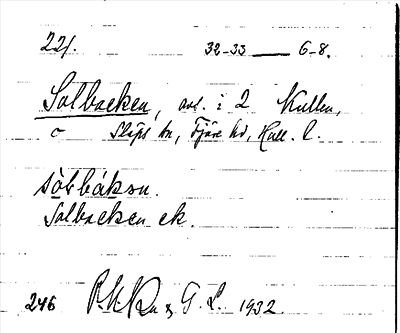 221. 32-33 — 6-8.
Solbacken, avs. i 2 Kullen,
Släps sn, Fjäre hd, Hall. l.
Solbacken ek.
246 G. L. 1932.